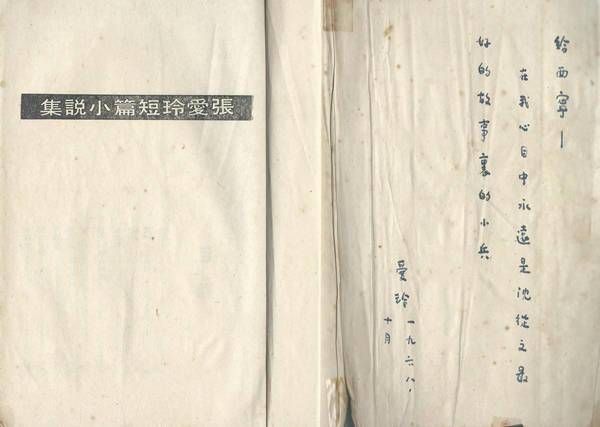 張愛玲短篇小説集
給西寧—
在我心目中永遠是沈從文最
好的故事裏的小兵
愛玲
一九六八，
十月